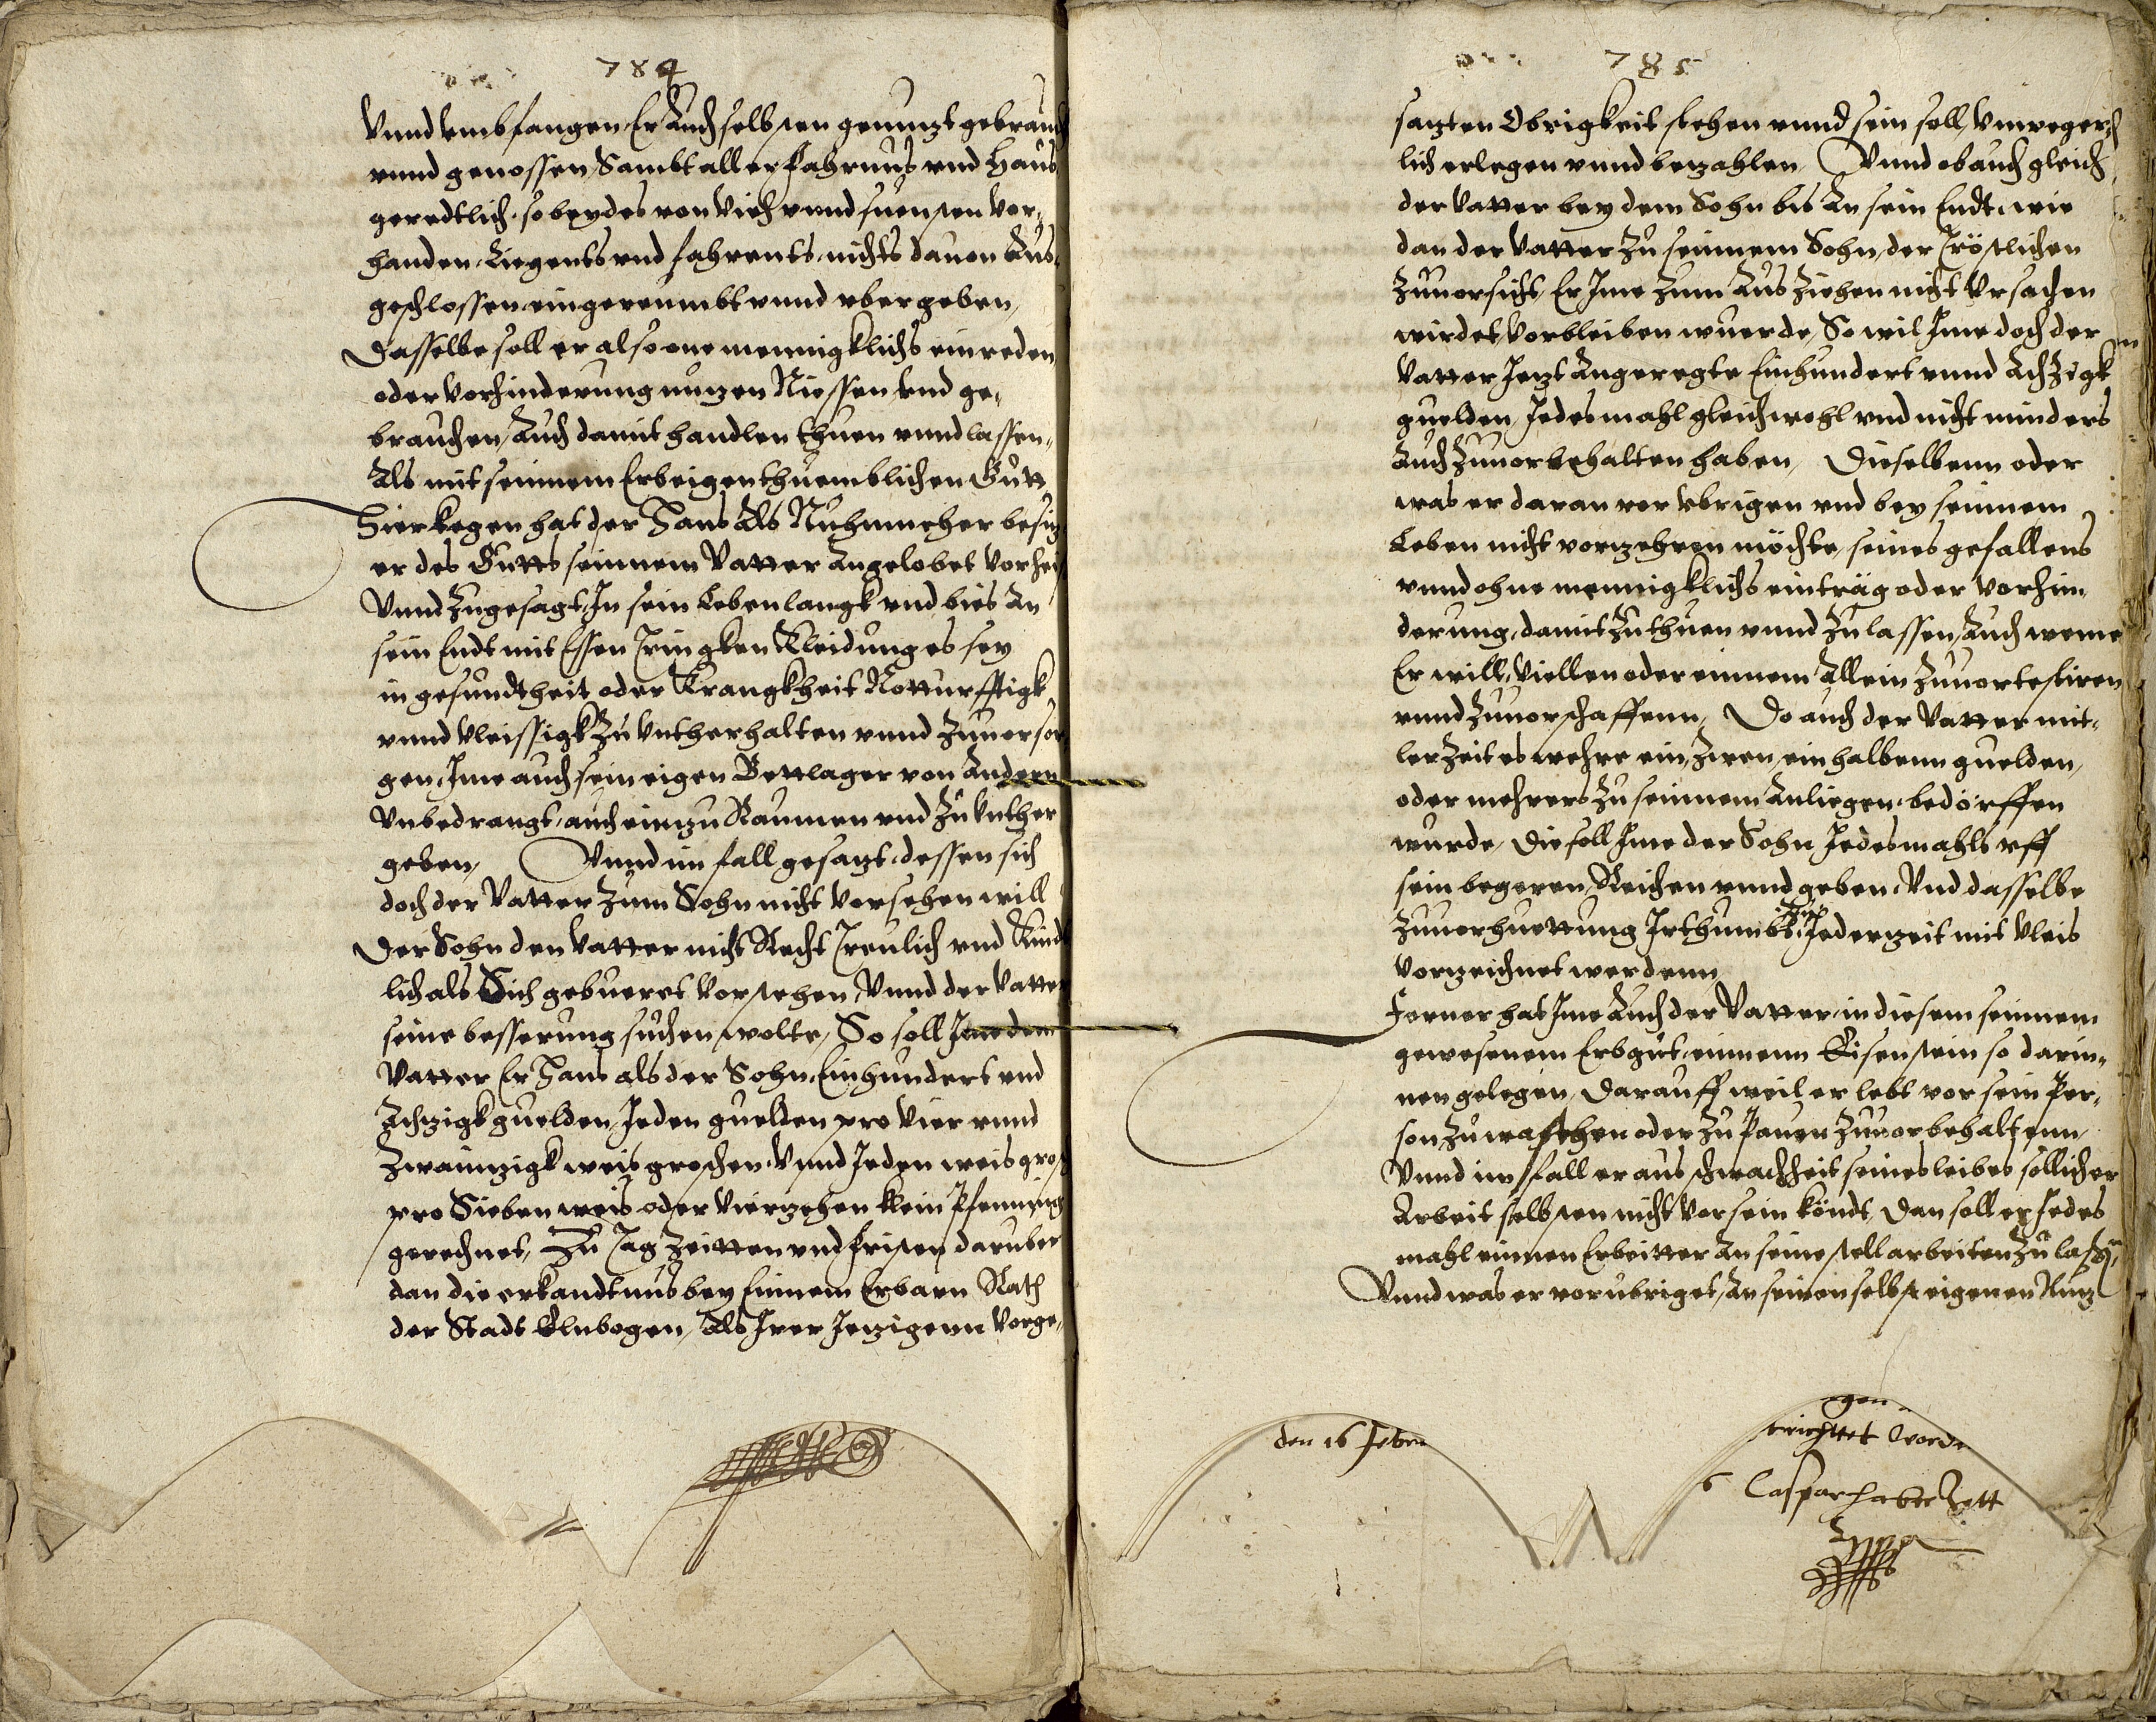 784
Vnnd embfangen Er Auch selbsten genuzt gebrauch
vnnd genossen, Sambt aller Fahrnus vnd Haus
geredtlich, so beydes von Viech vnnd sunsten vor,
handen, Liegents vnd fahrents, nichts dauon Aus,
geschlossen eingereumbt vnnd vbergeben,
Dasselbe soll er also one menigklichs einreden
oder vorhinderung nuzen Niessen vnd ge,
brauchen, Auch damit handlen thuen vnnd lassen,
Als mit seinnem Erbeigenthuemblichen Gutt
Hierkegen hat der Hans Als Nuhnmeher besiz
er des Gutts seinnem Vatter Angelobet vorhei
Vnnd zugesagt, In sein Leben langk vnd bies An
sein Endt mit Essen Tringken Kleidung es sey
in gesundtheit oder Krangkheit Notturfftigk
vnnd Vleissigk zu vntherhalten vnnd zuuorsor
gen, Ime auch sein eigen Bettlager von Andern
Vnbedrangt, auch einzu Raumen vnd zu vnther
geben, Vnnd im fall gesazt, dessen sich
doch der Vatter zum Sohn nicht vorsehen will
Der Sohn den Vatter nicht Recht Treulich vnd Kindt
lich als Sich gebueret vorstehen, Vnnd der Vatter
seine besserung suchen wolte, So soll Ime dem
Vatter Er Hans als der Sohn, Einhundert vnd
Achzigk guelden, Jeden guelden pro Vier vnnd
Zwainzigk weis groschen, Vnnd Jeden weis gros
pro Sieben weis oder Vierzehen klein Pfenning
gerechnet, Zu Tag Zeitten vnd fristen daruber
dan die erkandtnus bey Einnem Erbarn Rath
der Stadt Elnbogen, Als Irer Jezigenn vorge,
785
sazten Obrigkeit stehen vnnd sein soll, vnwegerch
lich erlegen vnnd bezahlen, Vnnd ob auch gleich
der Vatter bey dem Sohn bis An sein Endt, wie
dan der Vatter zu seinnem Sohn, der Tröstlichen
zuuorsicht, Er Ime zum Ausziehen nicht Vrsachen
wirdet, vorbleiben wuerde, So wil Ime doch der
Vatter Jezt Angeregte Einhundert vnnd Achzigk
guelden, Jedesmahl gleichwohl vnd nicht minders
Auch zuuorbehalten haben, Dieselbenn oder
was er daran vor vbrigen vnd bey seinnem
Leben nicht vorzehren möchte, seines gefallens
vnnd ohne menigklichs eintrag oder vorhin,
derung, damit zu thuen vnnd zu lassen, Auch weme
Er will, Viellen oder einnem Allein zuuortestiren
vnnd zuuorschaffenn, Do auch der Vatter mit,
ler Zeit es wehre ein, Zwen, ein halbenn guelden,
oder mehrers zu seinnem Anliegen bedörffen
wurde, Die soll Ime der Sohn Jedesmahls vff
sein begeren Reichen vnnd geben, Vnd dasselbe
zuuorhuettung Irthumbs, Jederzeit mit Vleis
vorzeichnet werdenn
Ferner hat Ime Auch der Vatter, in diesem seinnem
gewesenem Erbgut, einnenn Eisenstein so darin,
nen gelegen, Darauff weil er lebt vor sein Per,
son zu waschen oder zu Pauen zuuorbehaltenn,
Vnnd im fall er aus schwachheit seines leibes sollicher
Arbeit selbsten nicht vorsein köndt, Dan soll er Jedes
mahl einnen Erbeitter An seine stell arbeiten zu lassen,
Vnnd was er vorubriget, An seinen selbst eigenen Nuz
den 16 Febru
gen
richttet Word
6 Caspar